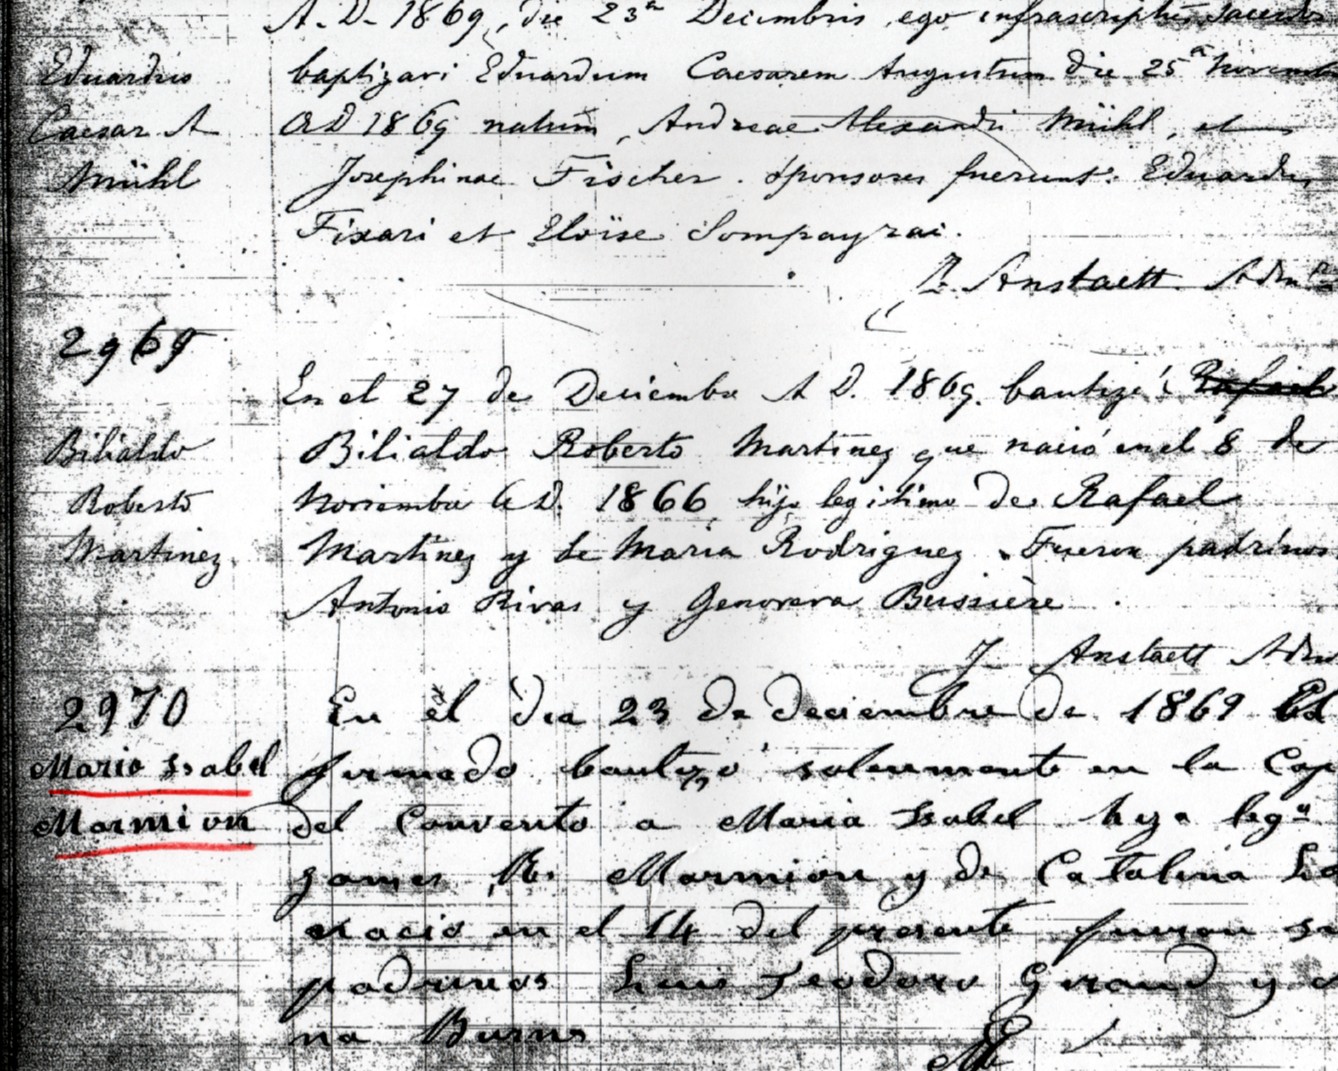 A. D. 1869, die 23ª Decimbris ego infrascriptus sacerdos
Eduardus baptizavi Eduardum Caesarem Augustum die 25ª Novemb
Caesar A AD 1869 natum, Andreae Alexandri Mühl, et
Mühl Josephinae Fischer. Sponsores fuerunt: Eduardus
Fixari et Eloïse Sompayrai.
Anstaett Adm
2969
En el 27 de Deciembre A D. 1869. bautizé Rafael
Bilialdo Bilialdo Roberto Martinez que nació en el 8 de
Roberto Noviembre A D. 1866, hijo legitimo de Rafael
Martinez Martinez y de Maria Rodriguez. Fueron padrinos
Antonio Rivas y Genoveva Bussière
J. Anstaett Adm
2970 En el dia 23 de deciembre de 1869 El
Maria Isabel firmado bautizó solenmente en la Cap
Marmion del Convento a Maria Isabel hija legª
James R. Marmion y de Catalina
nació en el 14 del presente fueron
padrinos Luis Teodoro Giraud y
na Burns